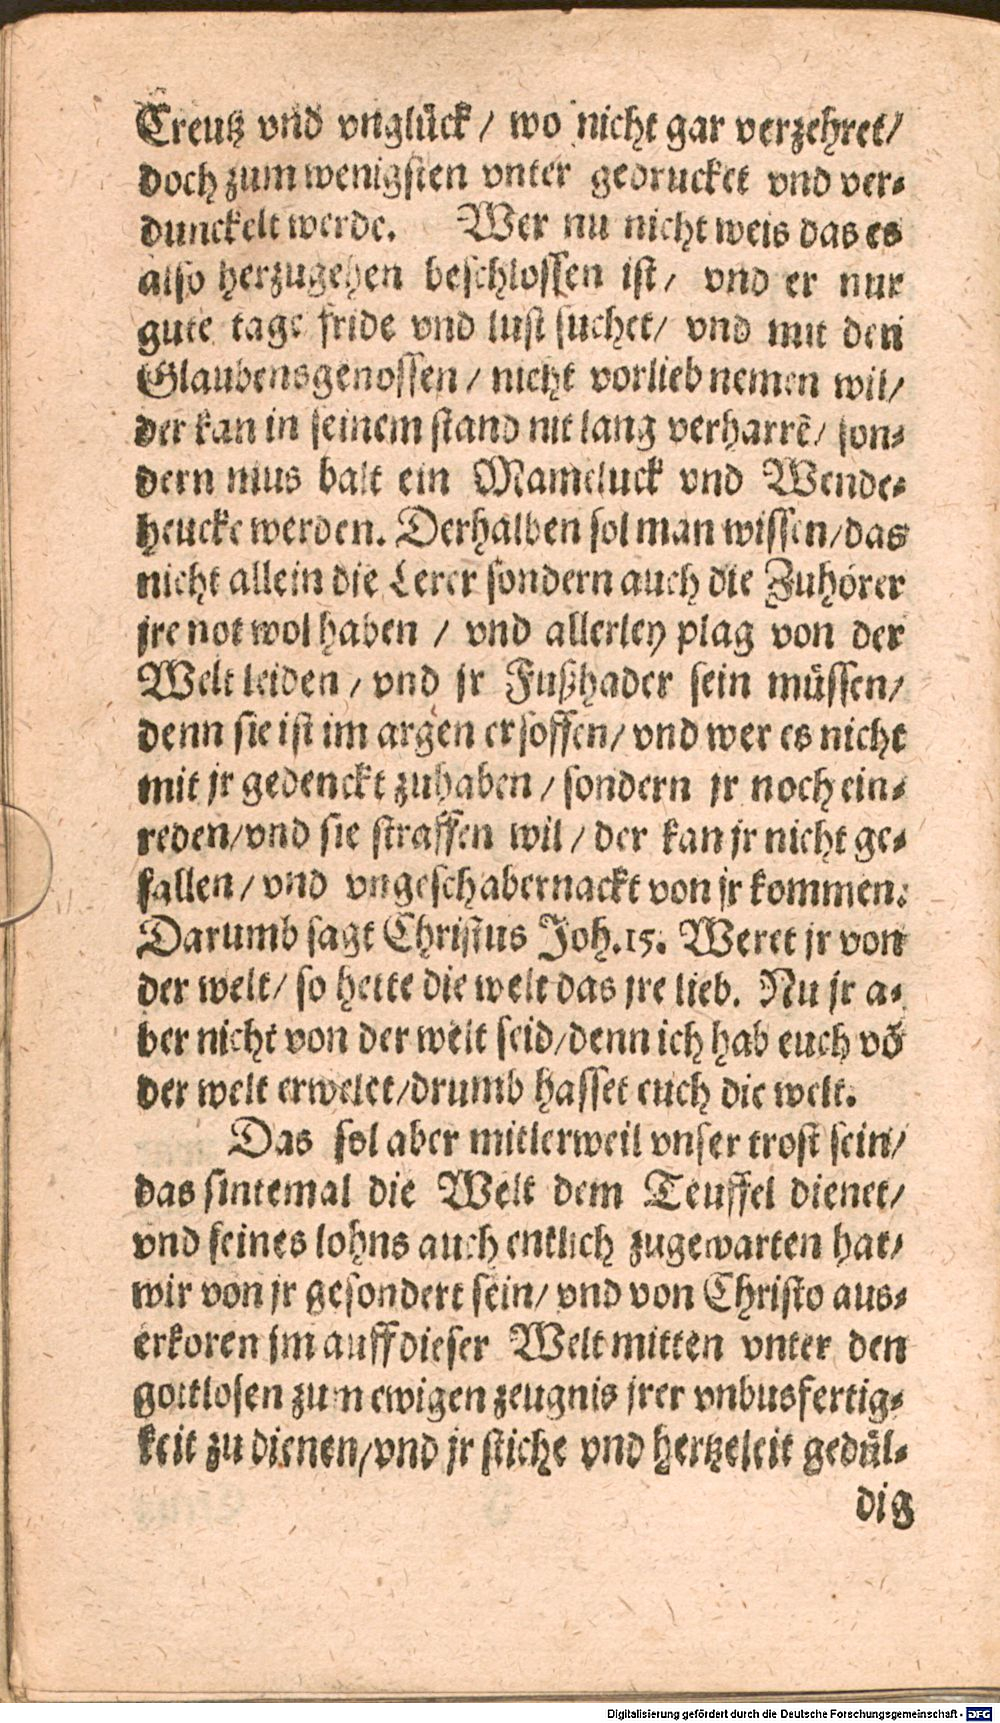 Creutz vnd vnglück / wo nicht gar verzehret /
doch zum wenigsten vnter gedrucket vnd ver-
dunckelt werde. Wer nu nicht weis das es
also herzugehen beschlossen ist / vnd er nur
gute tage fride vnd lust suchet / vnd mit den
Glaubensgenossen / nicht vorlieb nemen wil /
der kan in seinem stand nit lang verharrẽ / son-
dern mus balt ein Mameluck vnd Wende-
heucke werden. Derhalben sol man wissen / das
nicht allein die Lerer sondern auch die Zuhörer
jre not wol haben / vnd allerley plag von der
Welt leiden / vnd jr Fußhader sein müssen /
denn sie ist im argen ersoffen / vnd wer es nicht
mit jr gedenckt zuhaben / sondern jr noch ein-
reden / vnd sie straffen wil / der kan jr nicht ge-
fallen / vnd vngeschabernackt von jr kommen.
Darumb sagt Christus Joh. 15. Weret jr von
der welt / so hette die welt das jre lieb. Nu jr a-
ber nicht von der welt seid / denn ich hab euch võ
der welt erwelet / drumb hasset euch die welt.
Das sol aber mitlerweil vnser trost sein /
das sintemal die Welt dem Teuffel dienet /
vnd seines lohns auch entlich zugewarten hat /
wir von jr gesondert sein / vnd von Christo aus-
erkoren jm auff dieser Welt mitten vnter den
gottlosen zum ewigen zeugnis jrer vnbusfertig-
keit zu dienen / vnd jr stiche vnd hertzeleit gedül-
dig
Digitalisierung gefördert durch die Deutsche Forschungsgemeinschaft - DFG